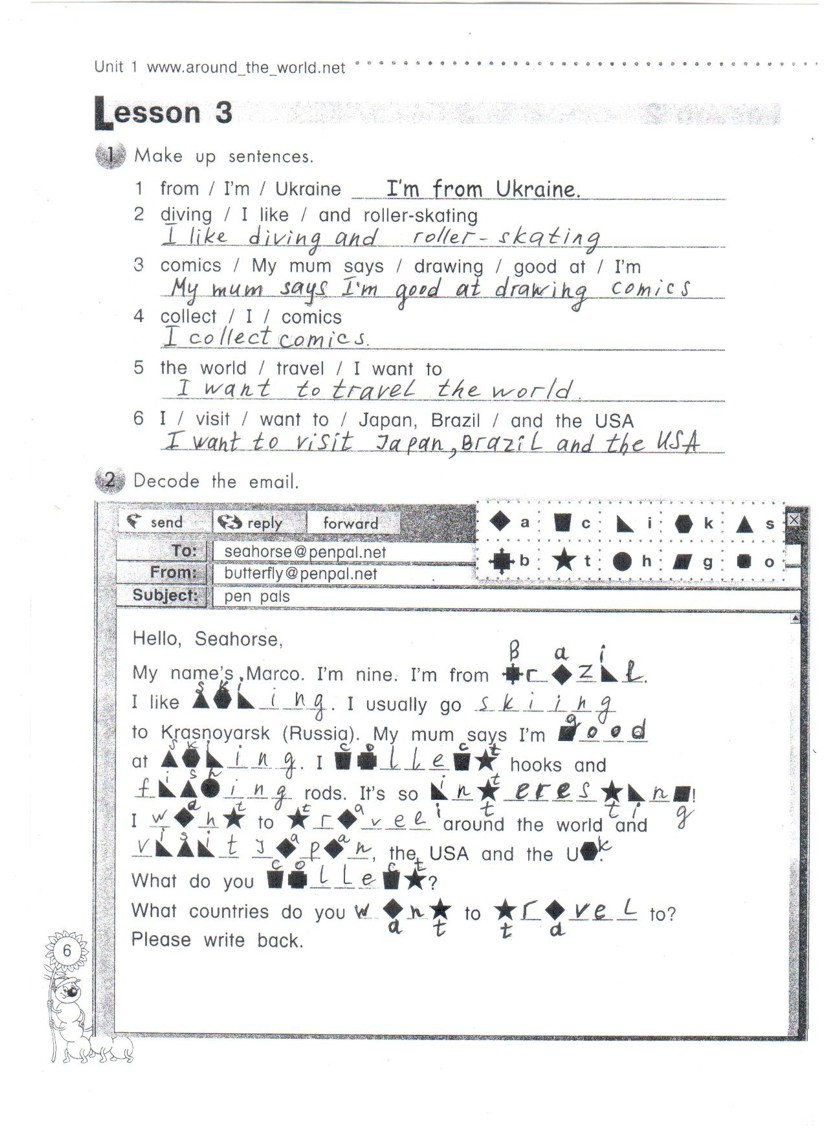 Unit 1 www.around_the_world.net
Lesson 3
1 Make up sentences.
1 from / I'm / Ukraine I'm from Ukraine.
2 diving / I like / and roller-skating
I like diving and roller-skating
3 comics / My mum says / drawing / good at / I'm
My mum says I'm good at drawing comics
4 collect / I / comics
I collect comics.
5 the world / travel / I want to
I want to travel the world.
6 I / visit / want to / Japan, Brazil / and the USA
I want to visit Japan, Brazil and the USA
2 Decode the email.
send reply forward
a c i k s
b t h g o
To: seahorse@penpal.net
From: butterfly@penpal.net
Subject: pen pals
Hello, Seahorse,
My name's Marco. I'm nine. I'm from Brazil.
I like skiing. I usually go skiing
to Krasnoyarsk (Russia). My mum says I'm good
at skiing. I collect hooks and
fishing rods. It's so interesting!
I want to travel around the world and
visit Japan, the USA and the Uk.
What do you collect?
What countries do you want to travel to?
Please write back.
6